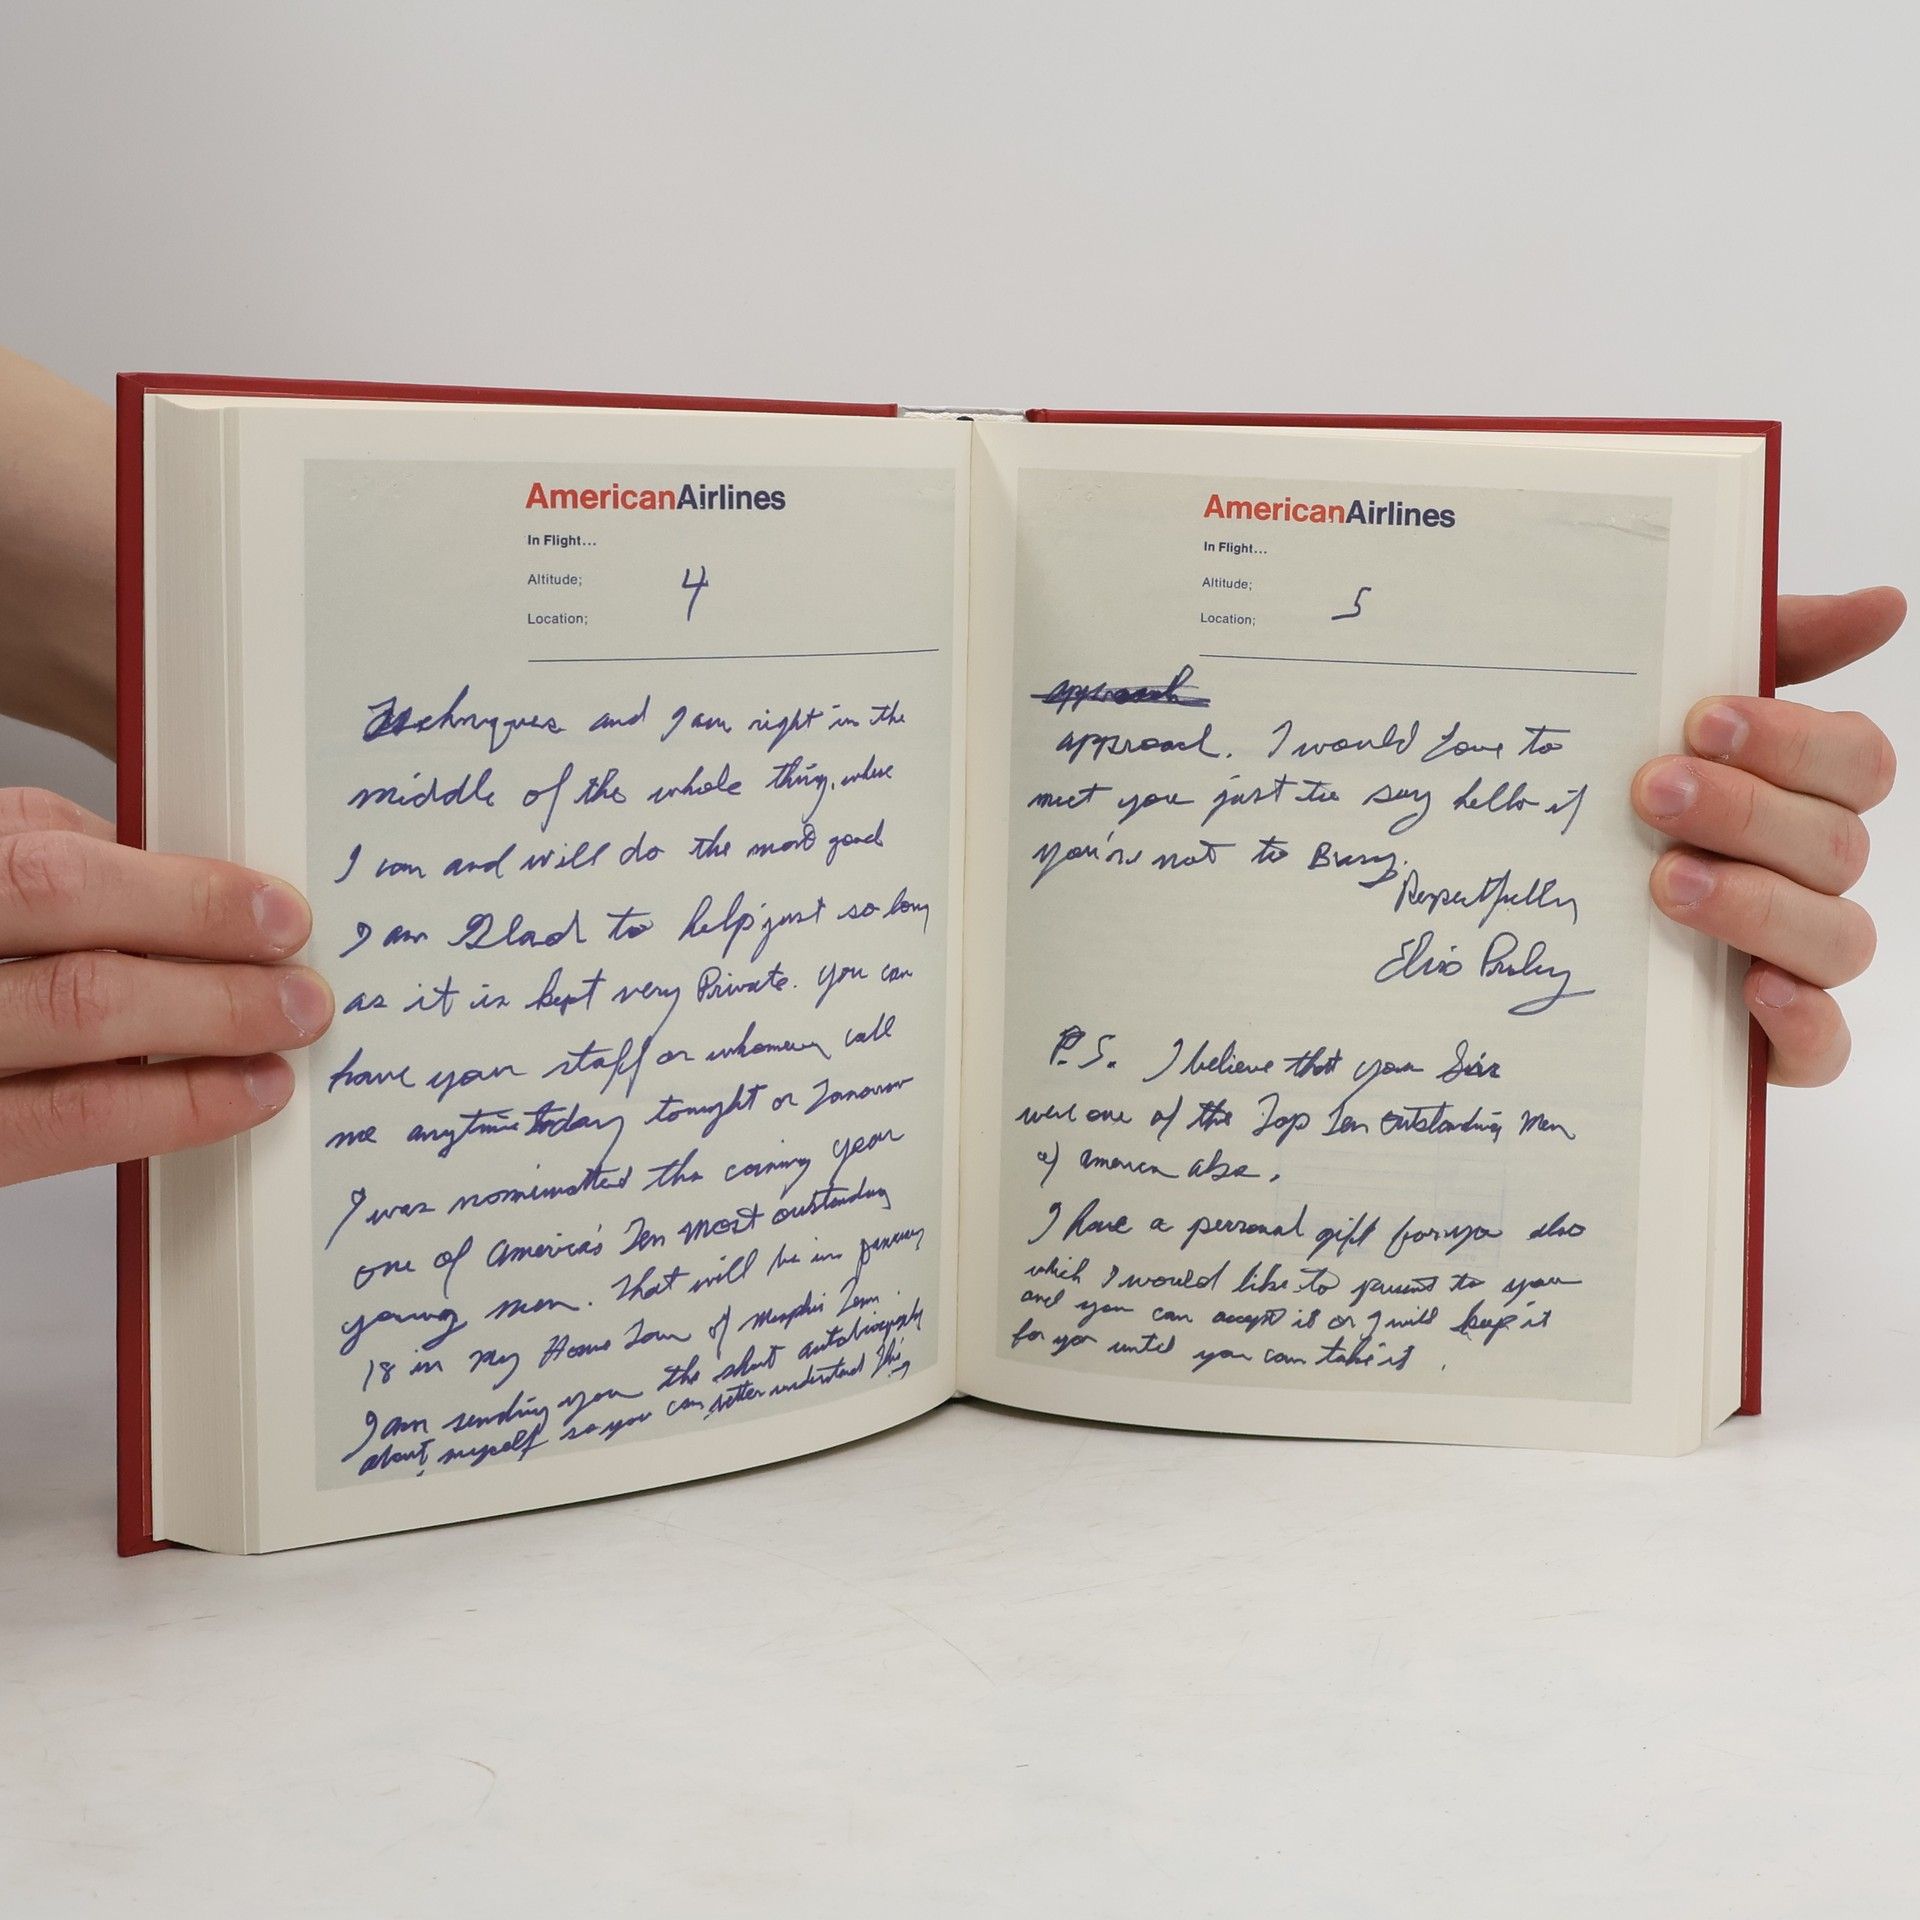 AmericanAirlines
In Flight...
Altitude;
4
Location;
Techniques and I am right in the
middle of the whole thing, where
I can and will do the most good
I am Glad to help just so long
as it is kept very Private. You can
have your staff or whomever call
me anytime today tonight or Tomorrow
I was nominated the coming year
one of America's Ten Most outstanding
young men. That will be in January
18 in my Home Town of Memphis Tenn.
I am sending you the short autobiography
about myself so you can better understand This
AmericanAirlines
In Flight...
Altitude;
5
Location;
approach
approach. I would Love to
meet you just to say hello if
you're not to Busy.
Respectfully
Elvis Presley
P.S. I believe that you Sir
were one of the Top Ten outstanding Men
of America also.
I have a personal gift for you also
which I would like to present to you
and you can accept it or I will keep it
for you until you can take it.